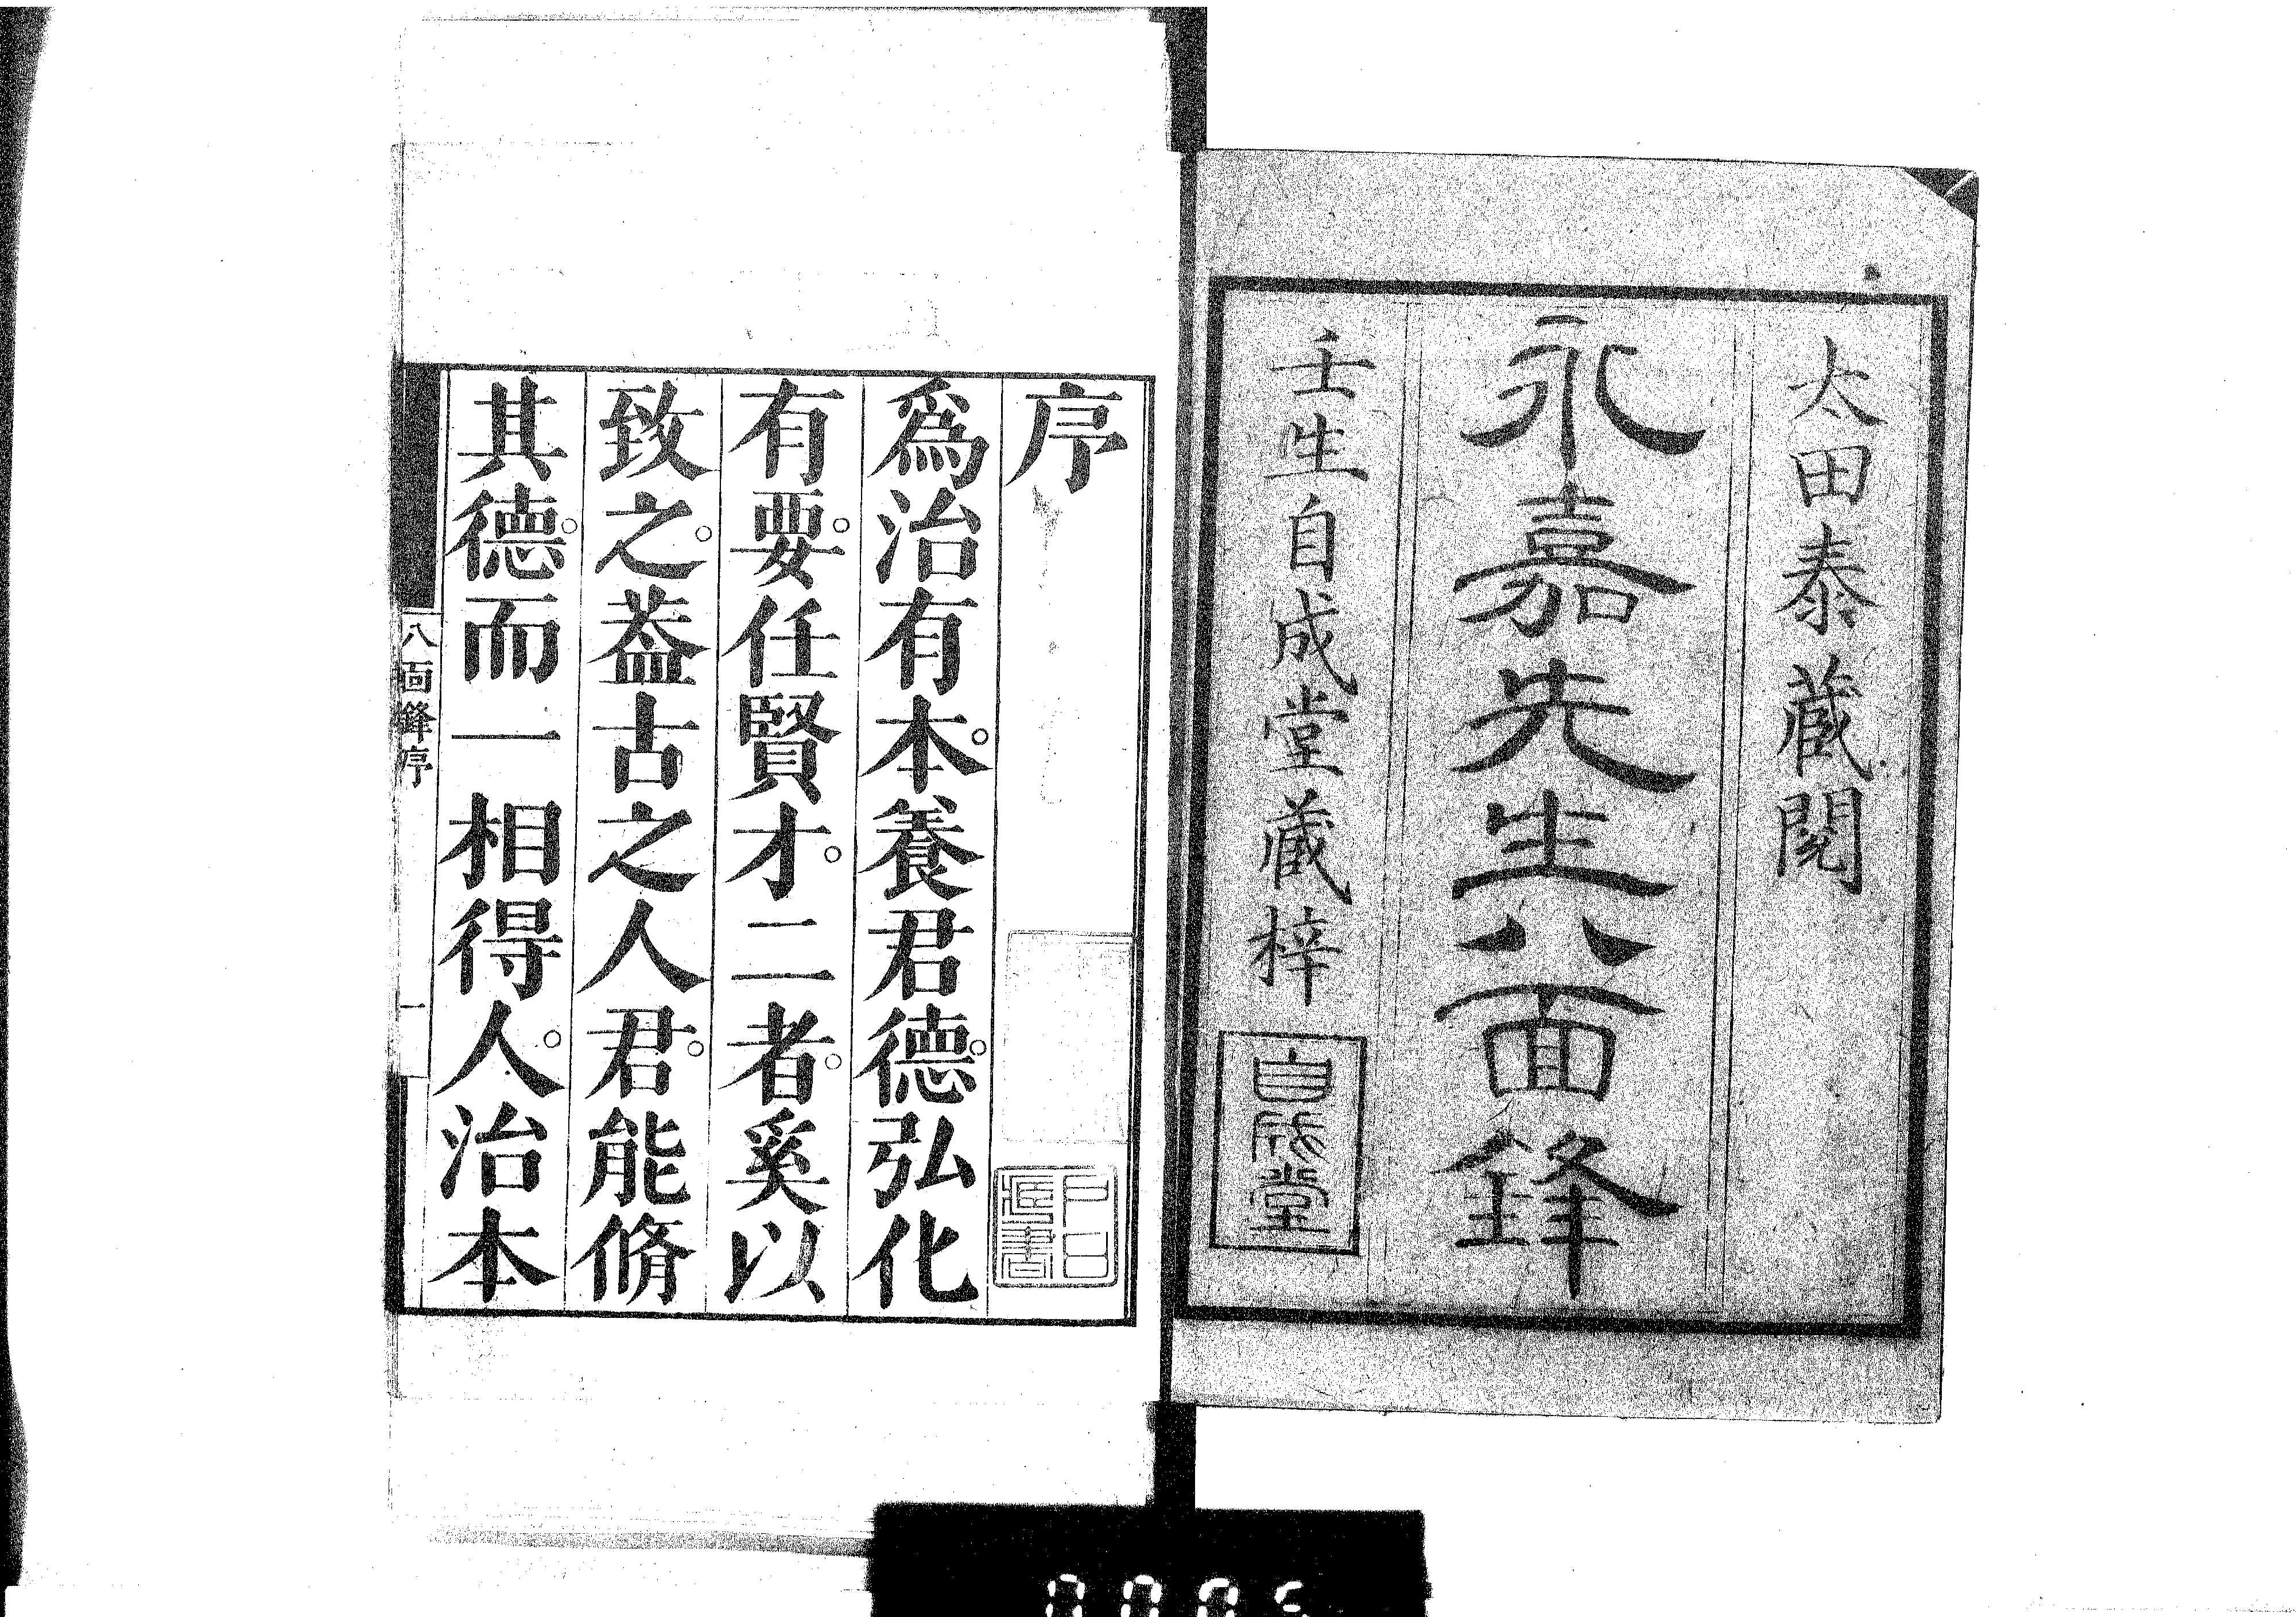 太田泰藏閱
永嘉先生八面鋒
壬生自成堂藏梓
自成堂
序
爲治有本養君德弘化
有要任賢才二者奚以
致之葢古之人君能脩
其德而一相得人治本
八面鋒序
一